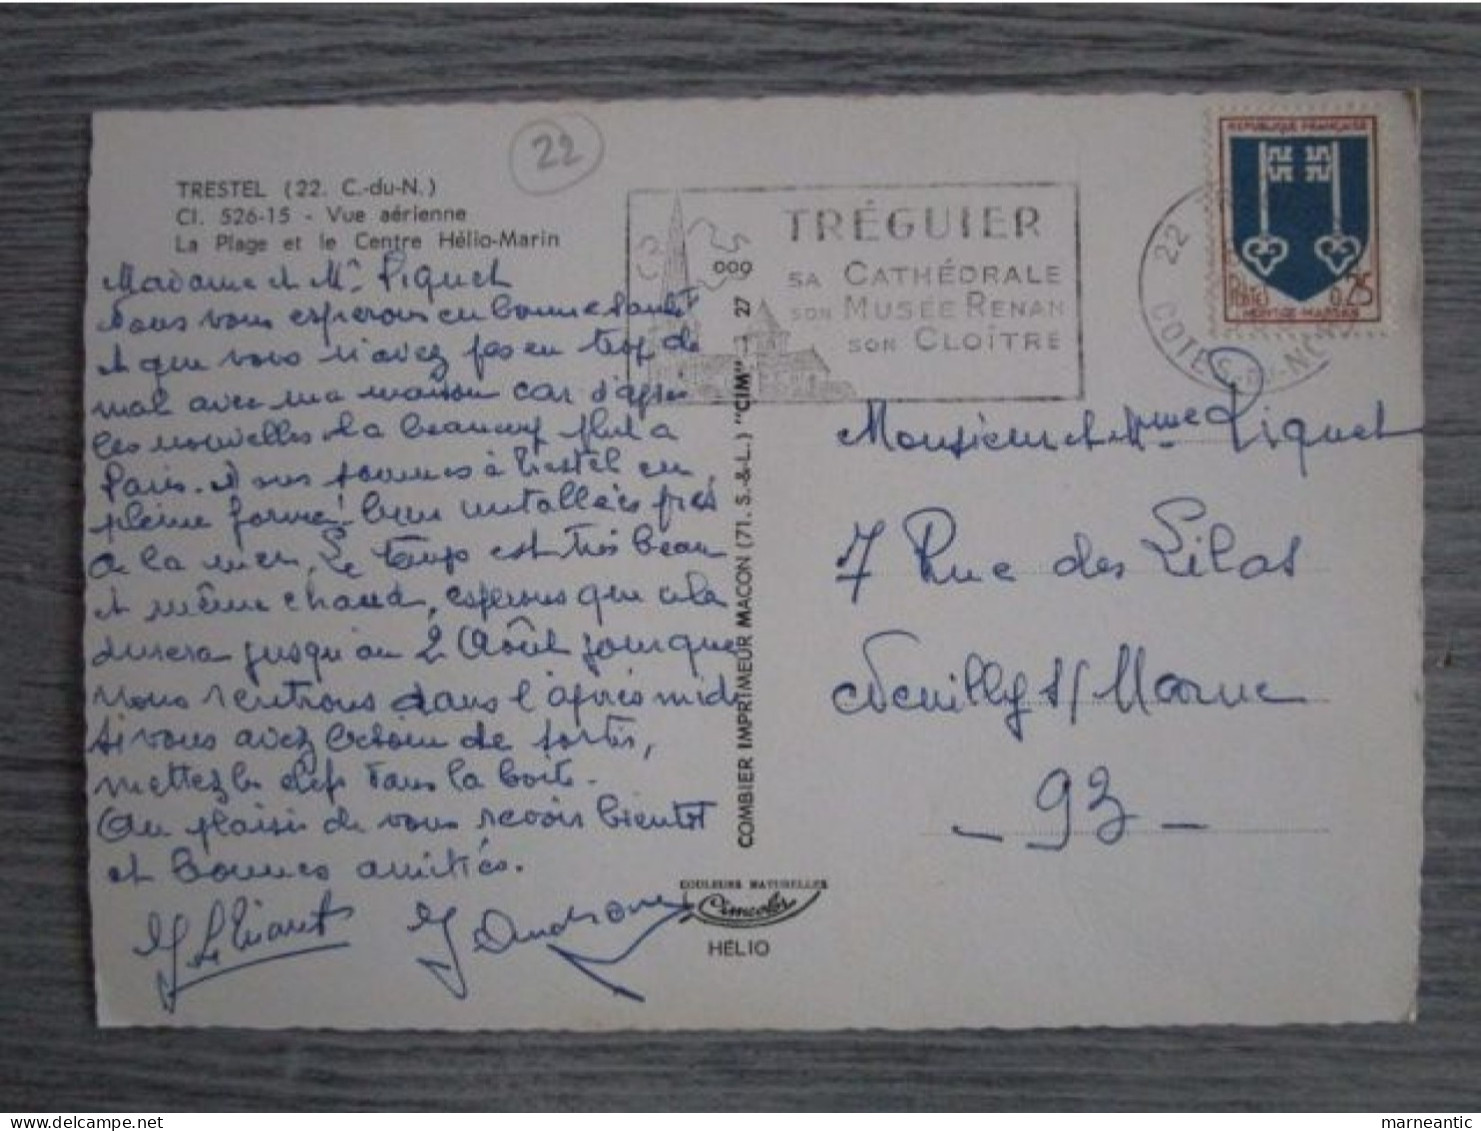 22
TRESTEL (22. C.-du-N.)
CI. 526-15 - Vue aérienne
La Plage et le Centre Hélio-Marin
Madame et Mr Piquet
Nous vous esperons en bonne santé
et que vous n'avez pas eu trop de
mal avec ma maison car d'après
les nouvelles il a beaucoup plut a
Paris. Nous sommes à Trestel en
pleine forme! bien installées près
de la mer. Le temps est très beau
et même chaud, esperons que cela
durera jusqu'au 2 Août jour que
nous rentrons dans l'après midi
Si vous avez besoin de sortir,
mettez les clefs dans la boite.
Au plaisir de vous revoir bientot
et bonnes amitiés.
COMBIER IMPRIMEUR MACON (71. S.-&-L.) "CIM"
27
009
TRÉGUIER
SA CATHÉDRALE
SON MUSÉE RENAN
SON CLOÎTRE
22
COTES-DU-NORD
REPUBLIQUE FRANÇAISE
Postes 0,25
MONT-DE-MARSAN
Monsieur et Mme Piquet
7 Rue des Lilas
Neuilly s/ Marne
- 93 -
COULEURS NATURELLES
Cimcolor
HÉLIO
marneantic